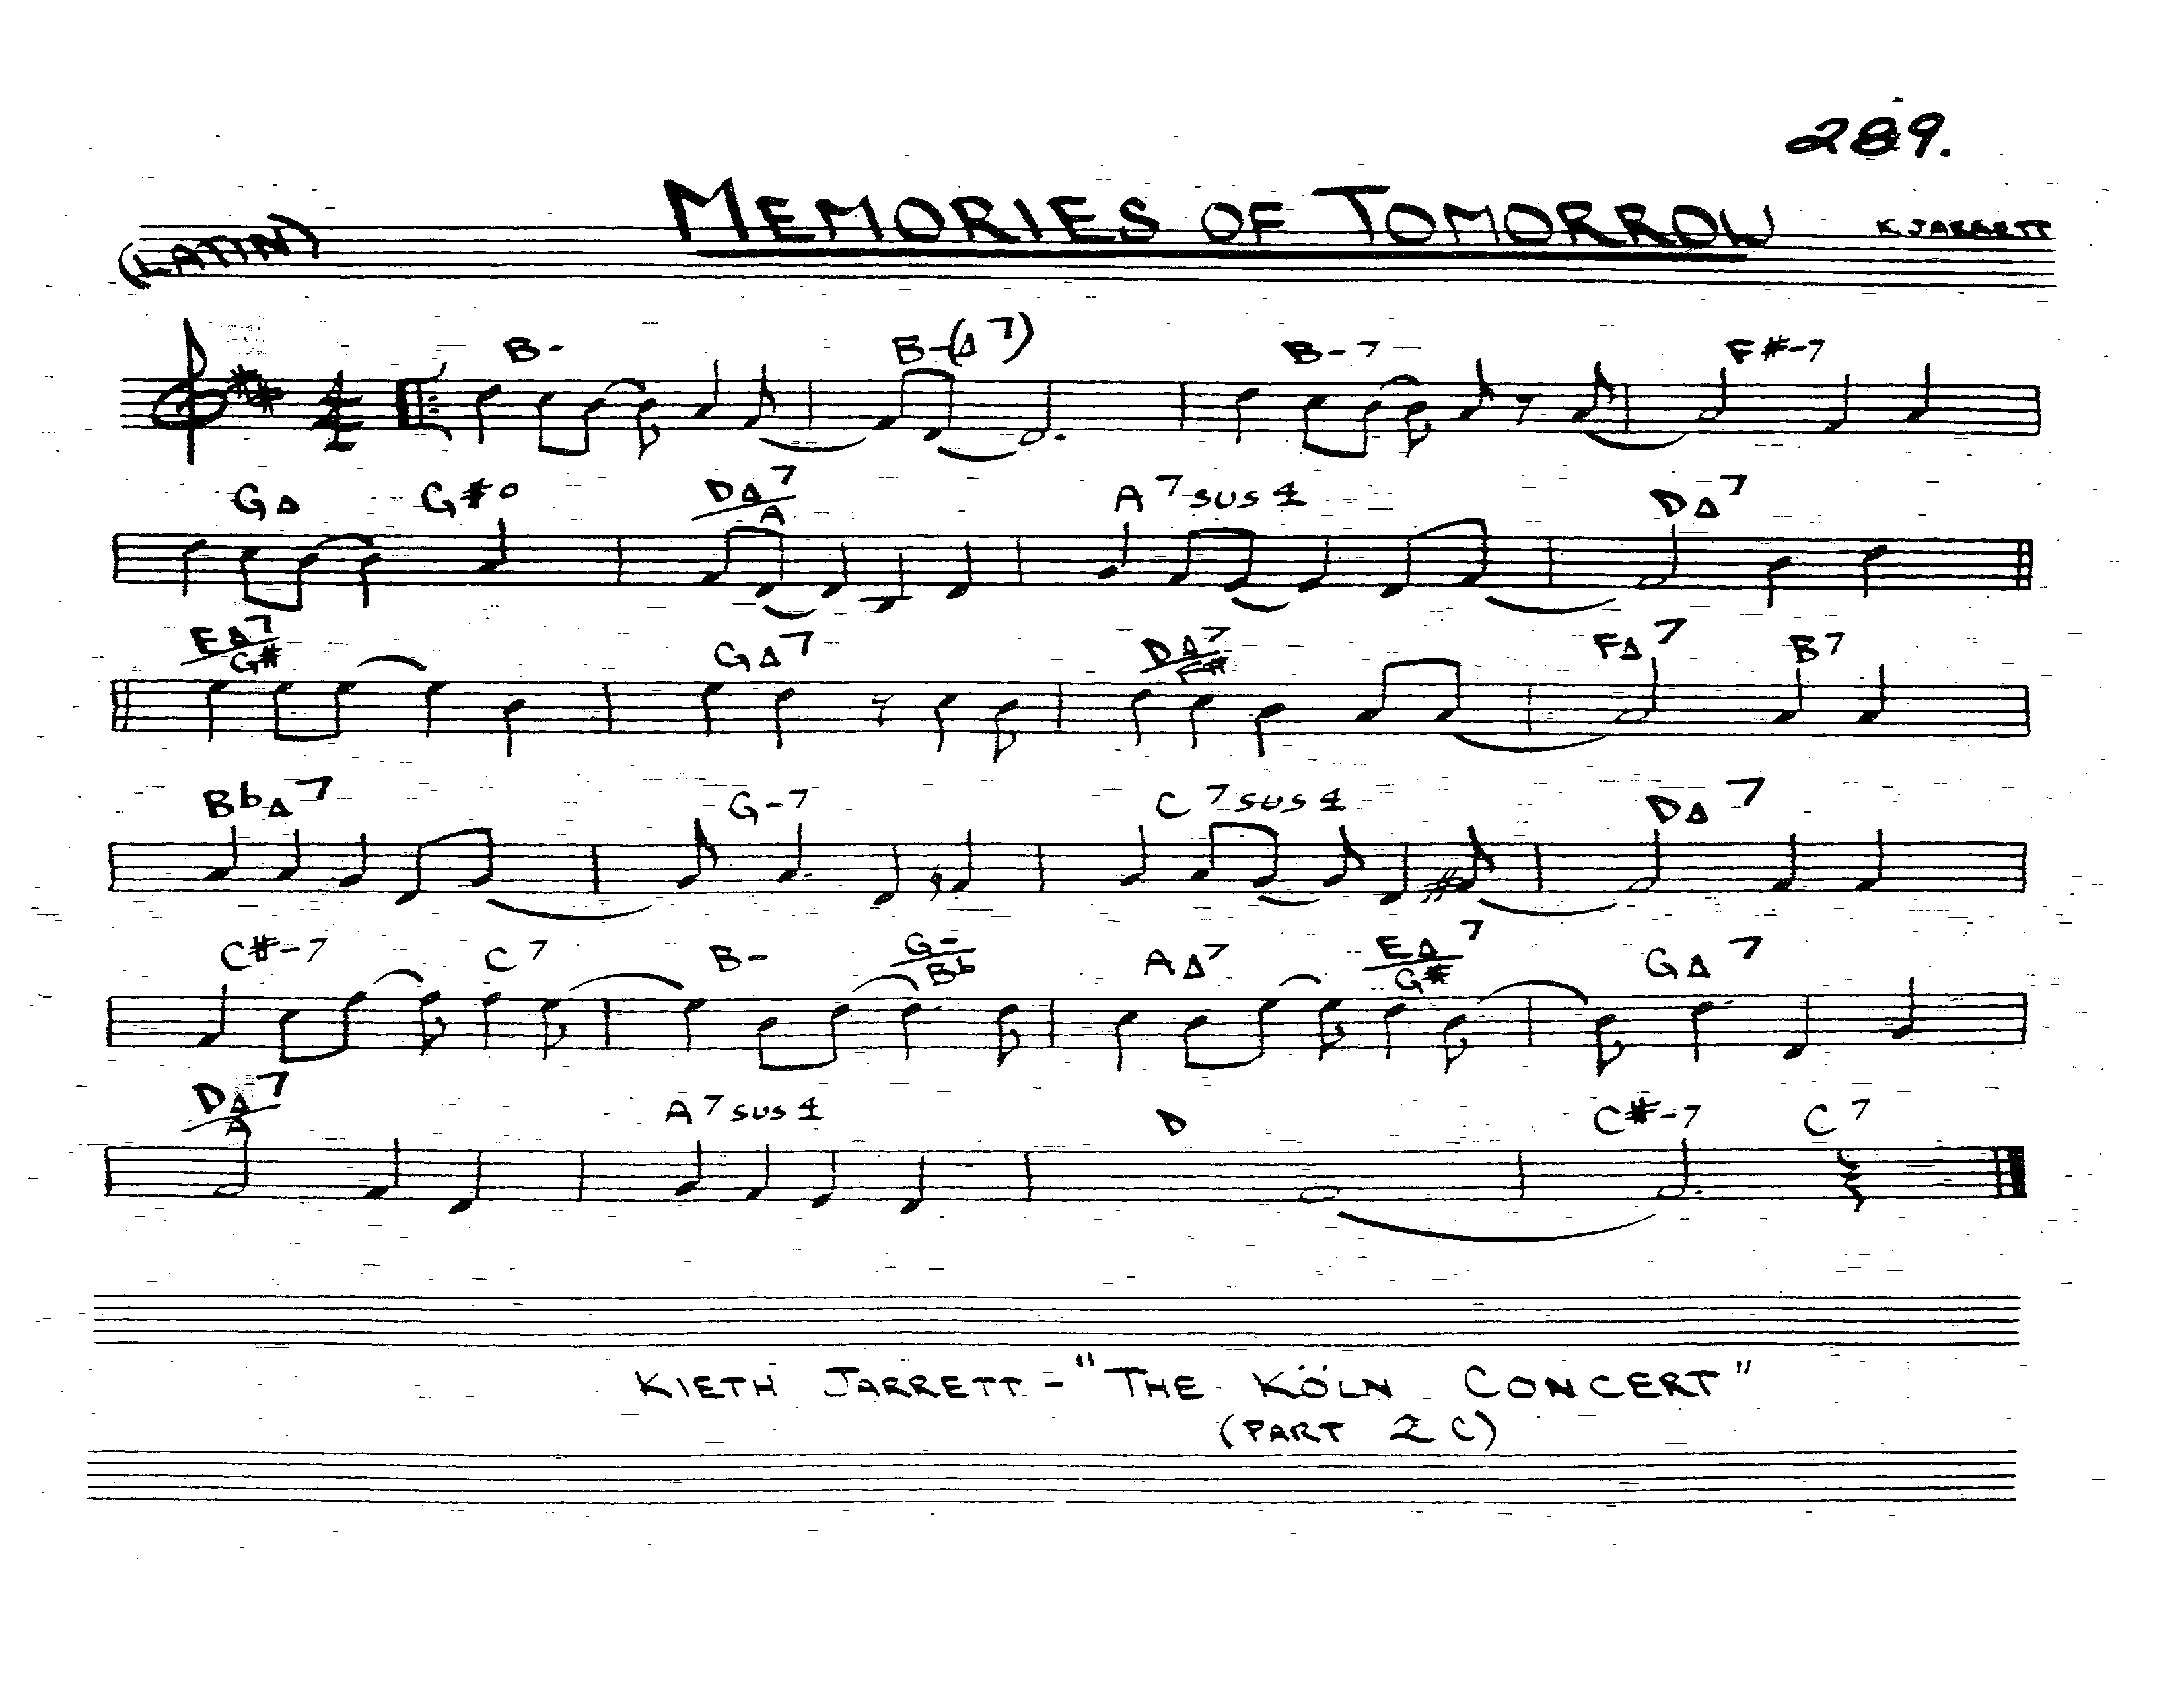 289.
MEMORIES OF TOMORROW
K JARRETT
(LATIN)
B- B-(Δ7) B-7 F#-7
GΔ G#o DΔ7/A A7sus4 DΔ7
EΔ7/G# GΔ7 DΔ7/F# FΔ7 B7
BbΔ7 G-7 C7sus4 DΔ7
C#-7 C7 B- G-/Bb AΔ7 EΔ7/G# GΔ7
DΔ7/A A7sus4 D C#-7 C7
KIETH JARRETT - "THE KÖLN CONCERT"
(PART 2 C)